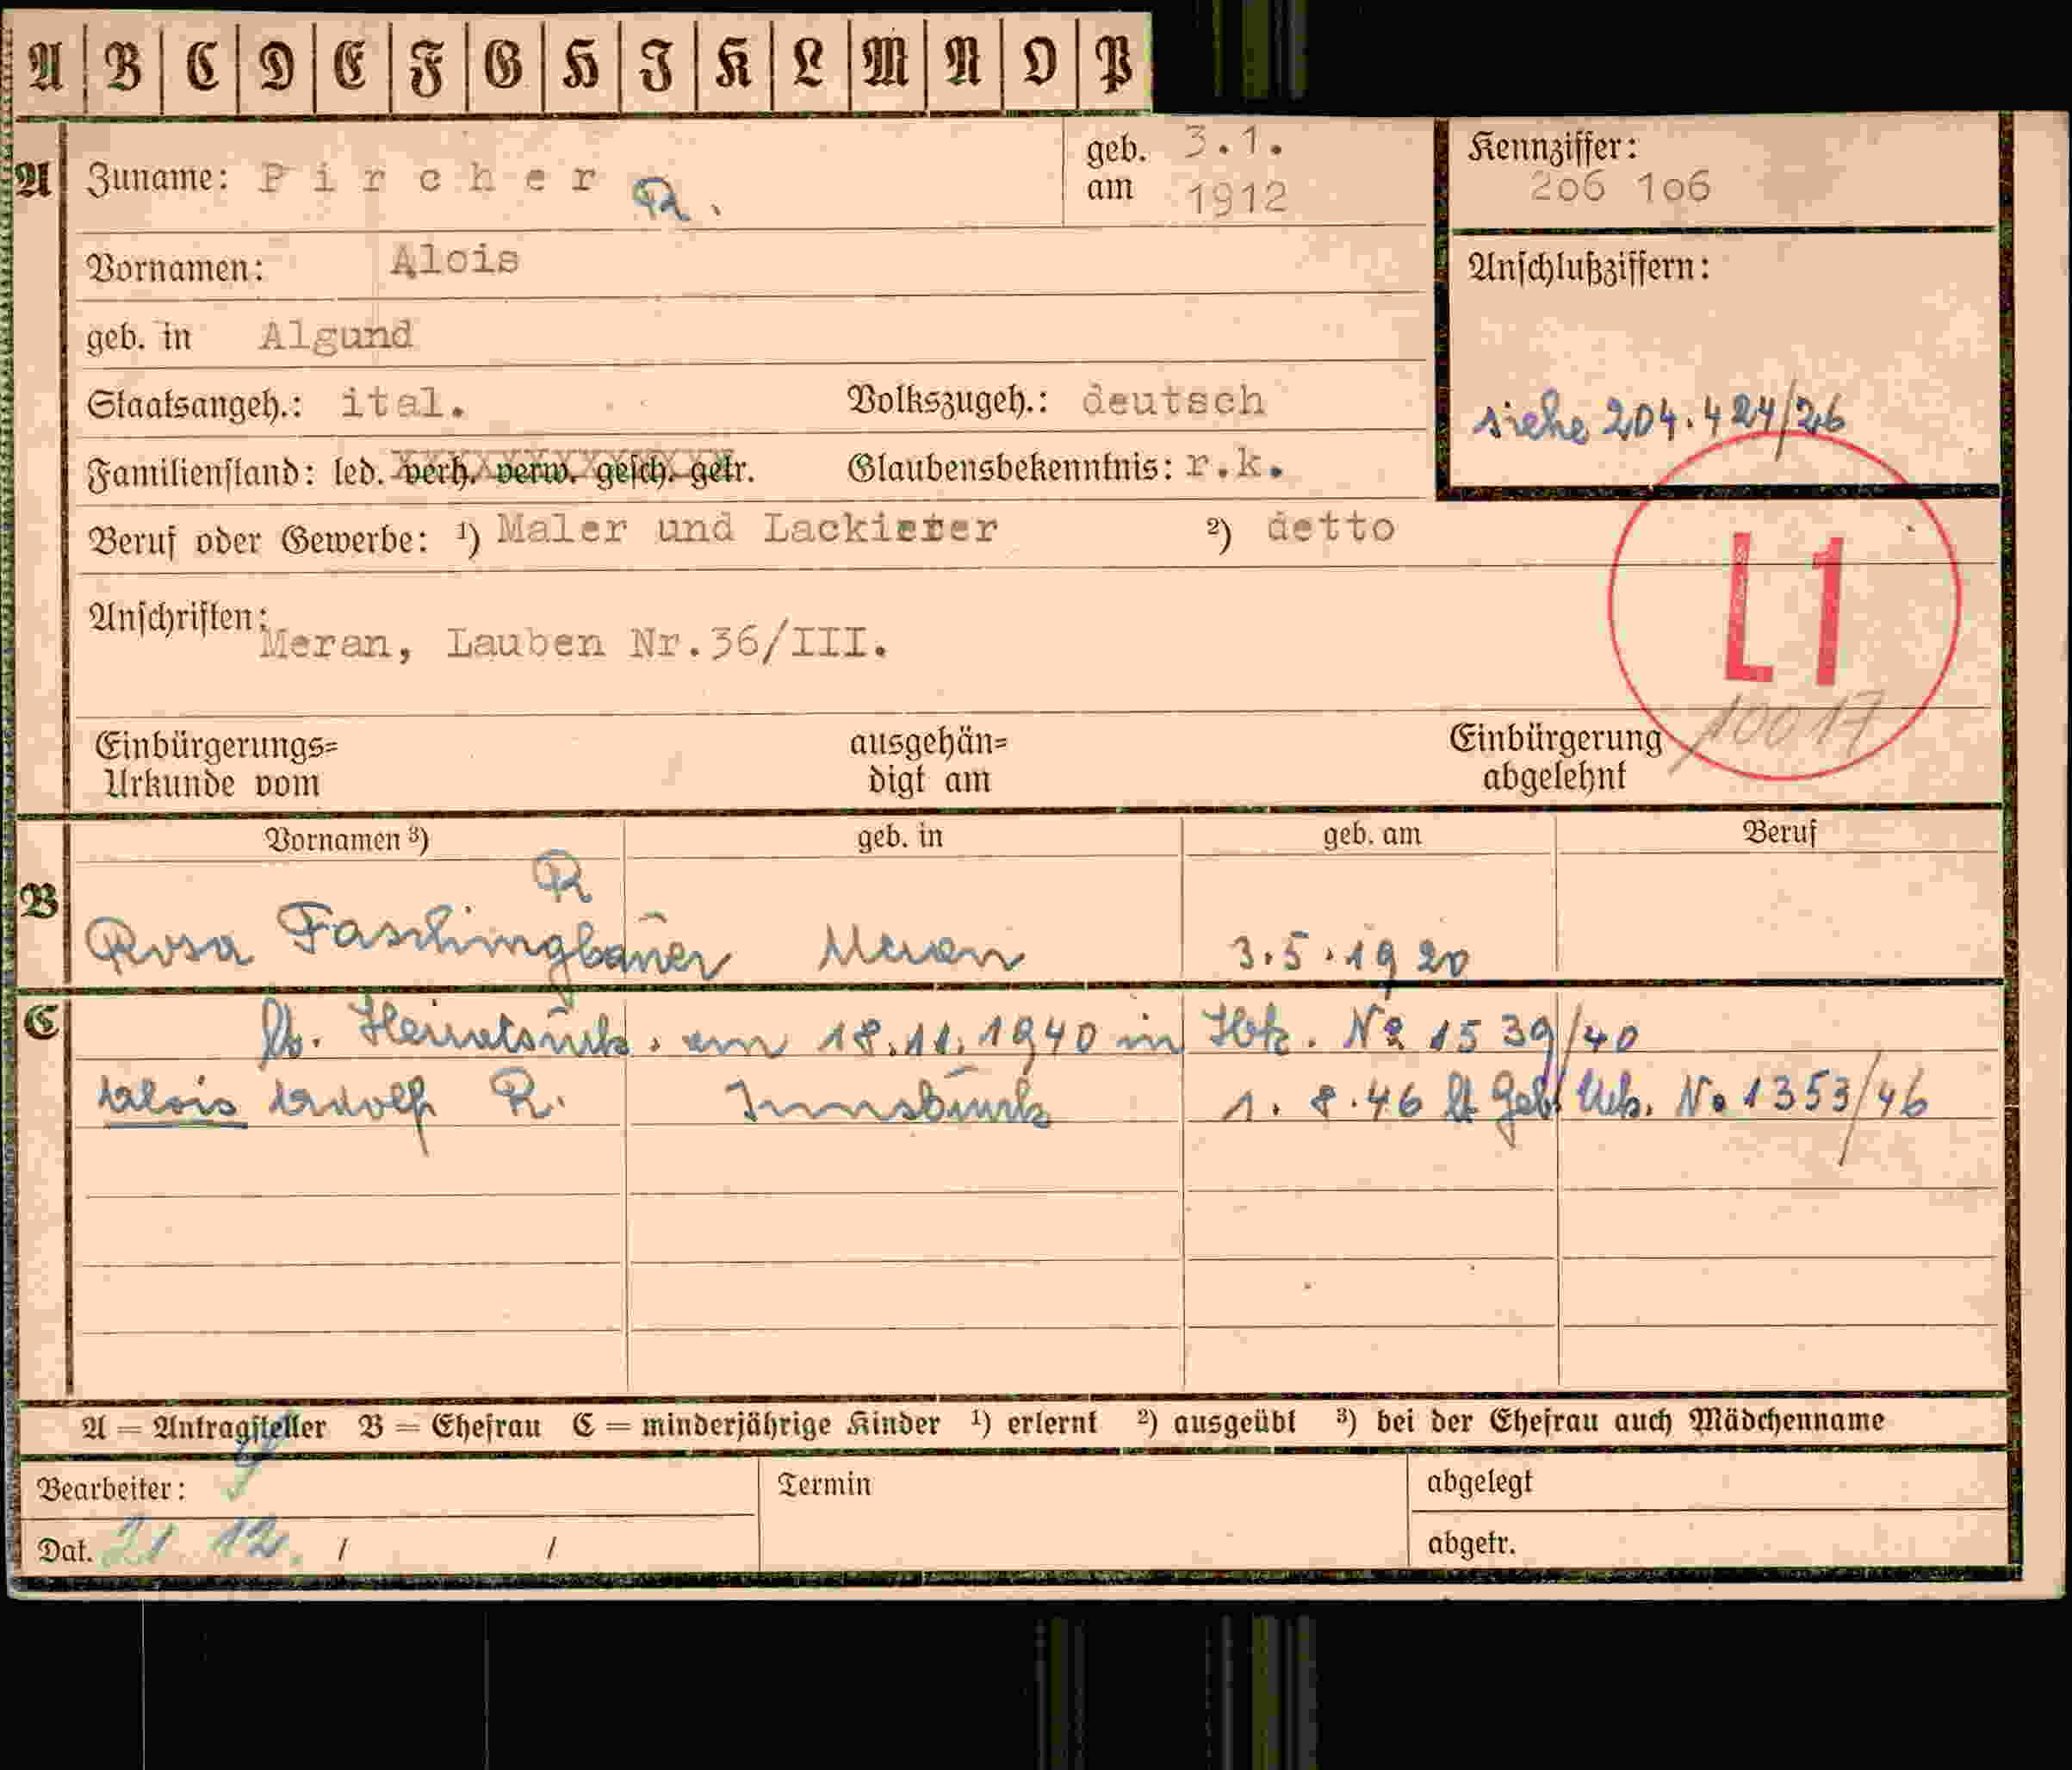 A B C D E F G H J K L M N O P
A Zuname: Pircher R. geb. am 3.1. 1912 Kennziffer: 206 106
Vornamen: Alois Anschlußziffern:
geb. in Algund
Staatsangeh.: ital. Volkszugeh.: deutsch siehe 204.424/26
Familienstand: led. verh. verw. gesch. getr. Glaubensbekenntnis: r.k.
Beruf oder Gewerbe: ¹) Maler und Lackierer ²) detto
L1
Anschriften: Meran, Lauben Nr.36/III.
10017
Einbürgerungs= ausgehän= Einbürgerung
Urkunde vom digt am abgelehnt
Vornamen ³) geb. in geb. am Beruf
R
B Rosa Faschingbauer Meran 3.5.1920
C lt. Heiratsurk. am 18.11.1940 in Ibk. No 1539/40
Alois Adolf R. Innsbruck 1.8.46 lt Geb. Urk. No 1353/46
A = Antragsteller B = Ehefrau C = minderjährige Kinder ¹) erlernt ²) ausgeübt ³) bei der Ehefrau auch Mädchenname
Bearbeiter: Termin abgelegt
Dat. 21. 12. / / abgetr.